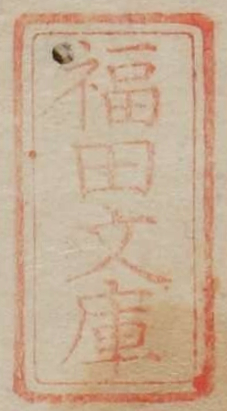 福田文庫